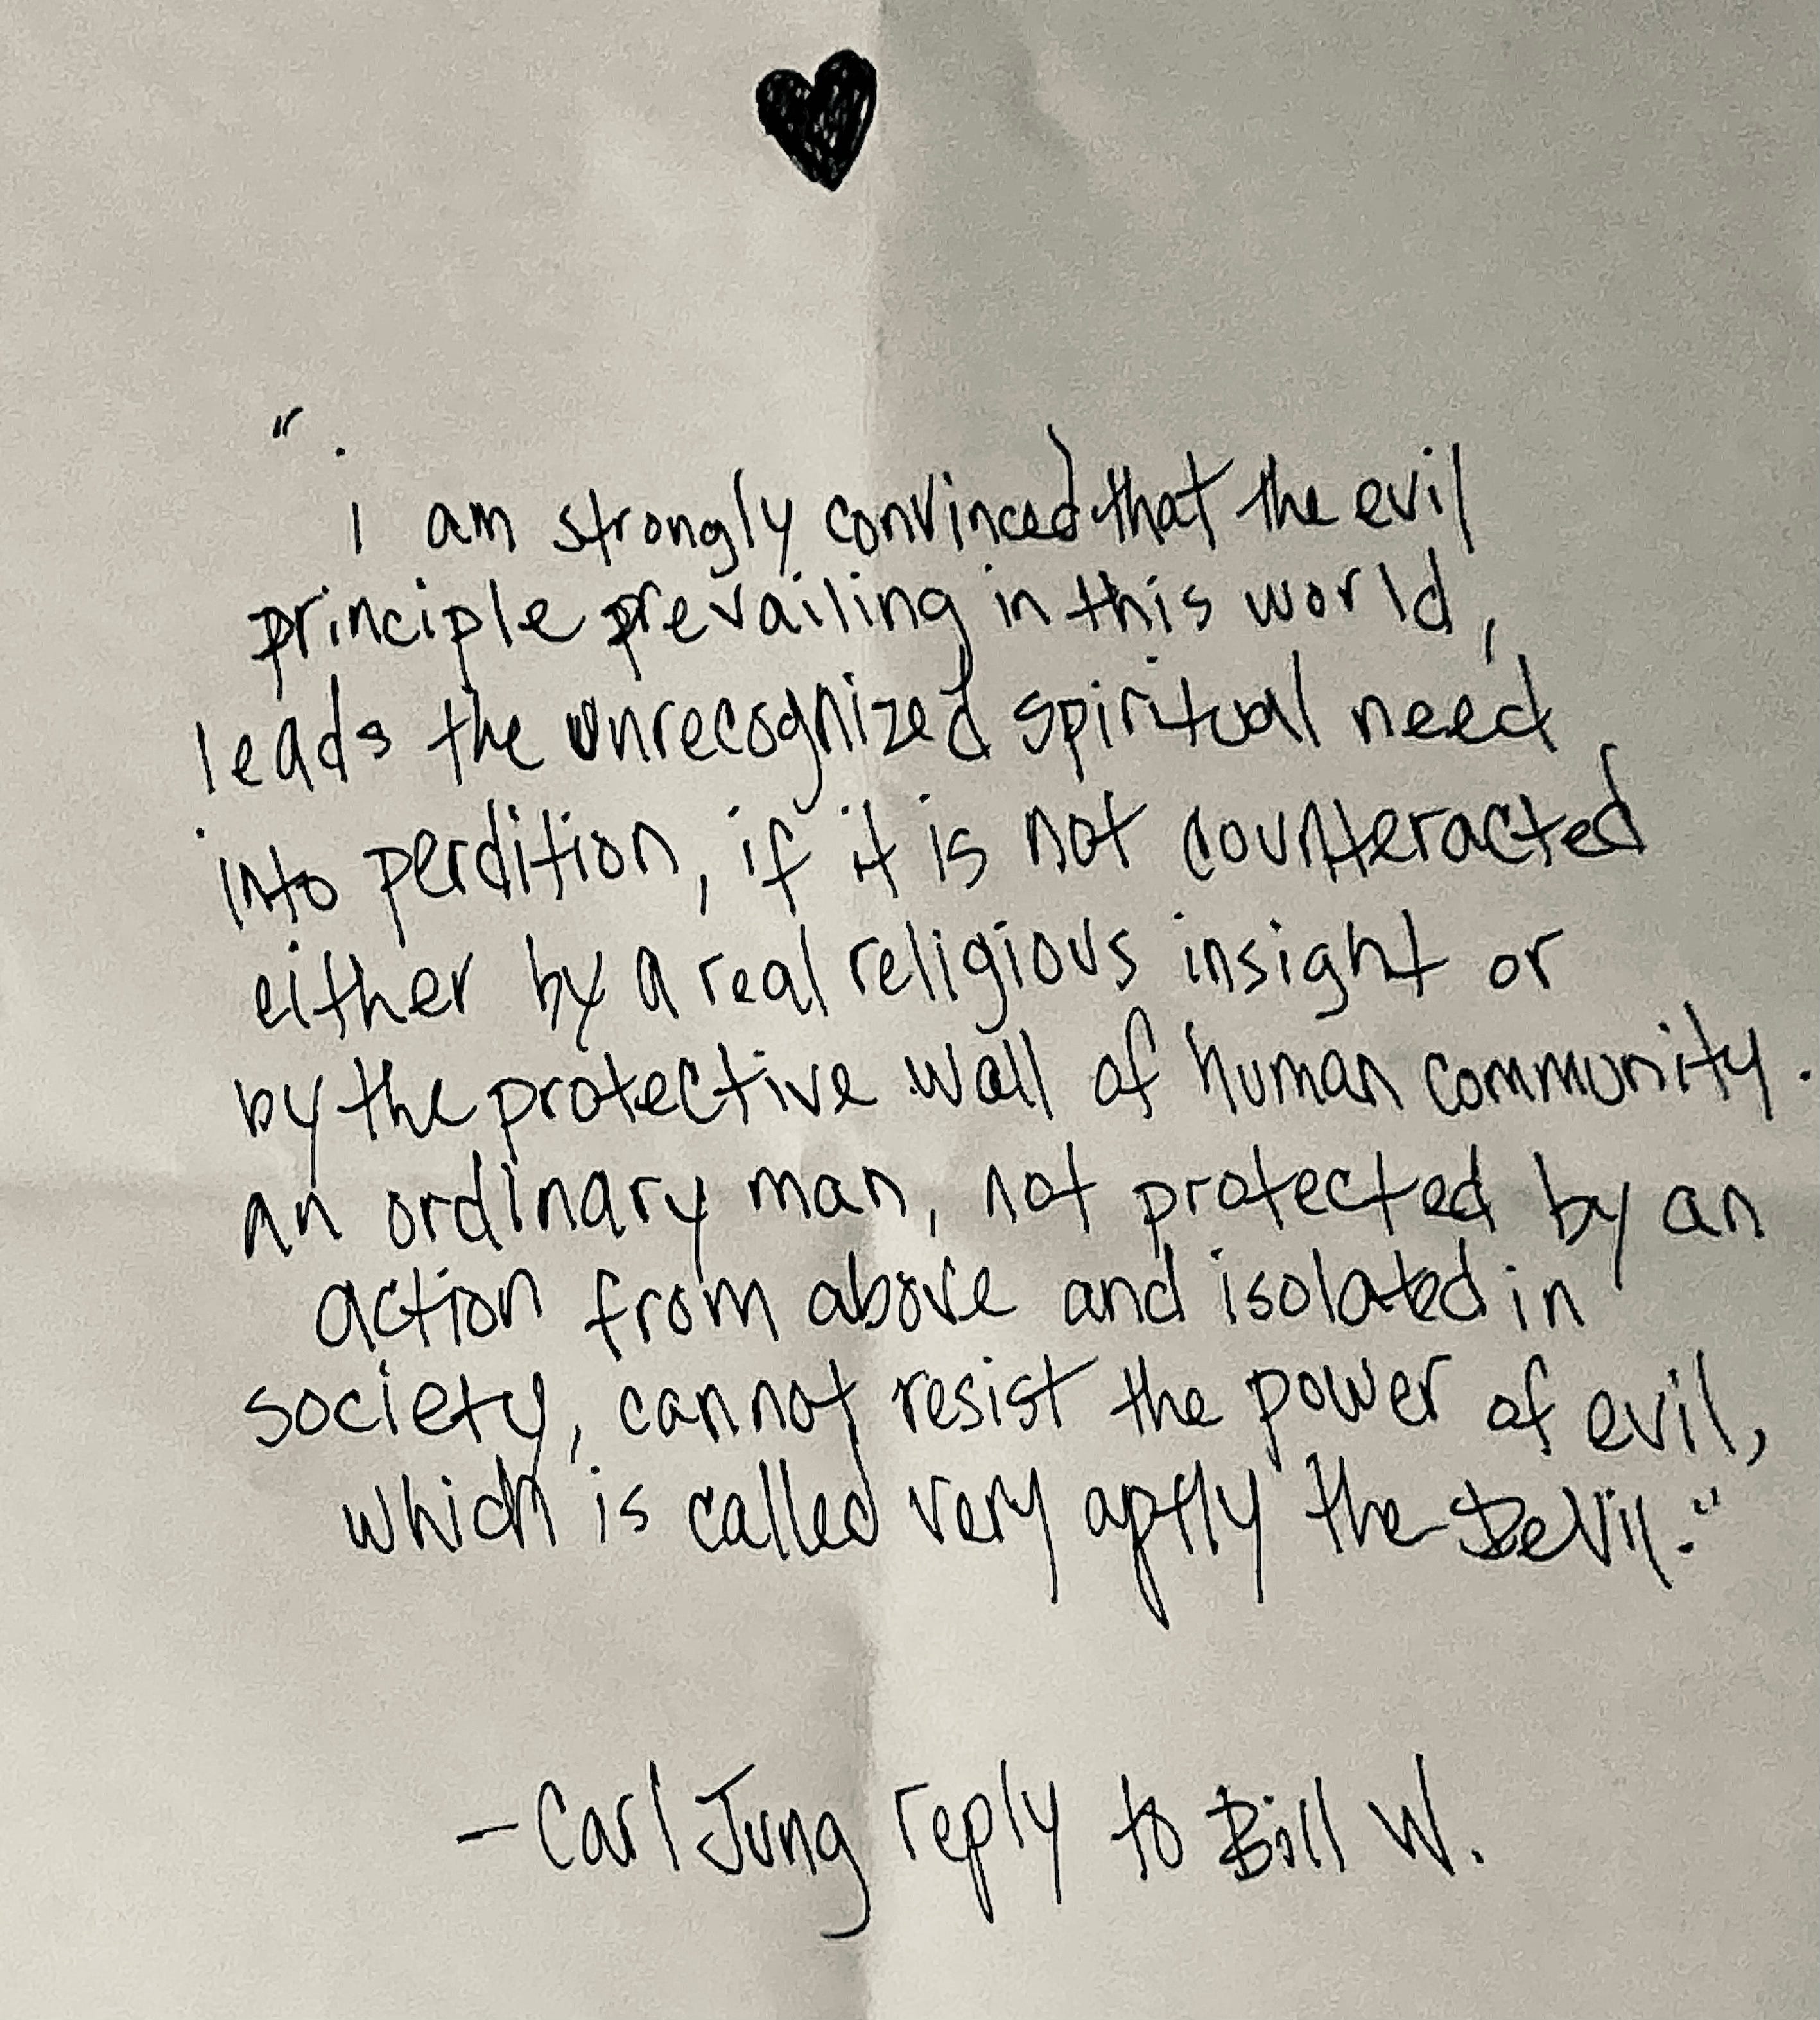 "i am strongly convinced that the evil
principle prevailing in this world,
leads the unrecognized spiritual need
into perdition, if it is not counteracted
either by a real religious insight or
by the protective wall of human community.
an ordinary man, not protected by an
action from above and isolated in
society, cannot resist the power of evil,
which is called very aptly the Devil."
- Carl Jung reply to Bill W.